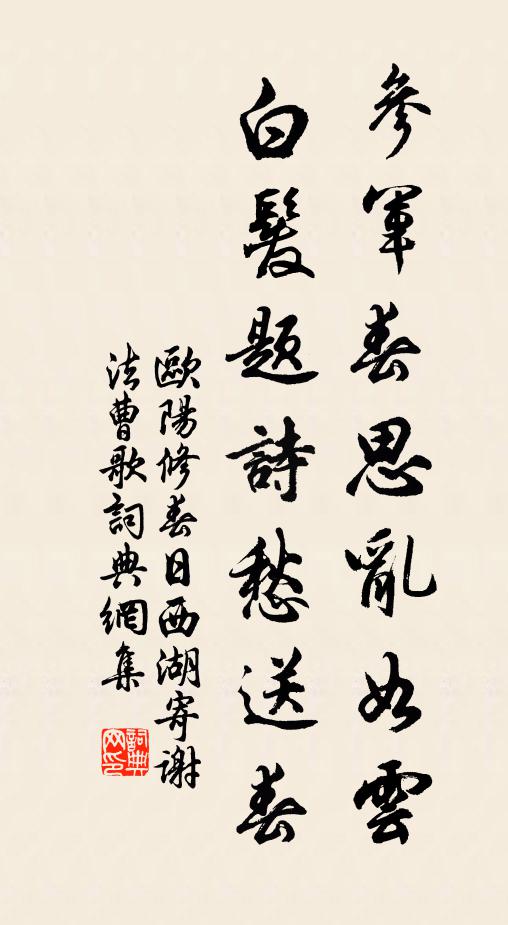 參軍春思亂如雲
白髮題詩愁送春
歐陽修春日西湖寄謝
法曹歌詞典網集
詞典
网印